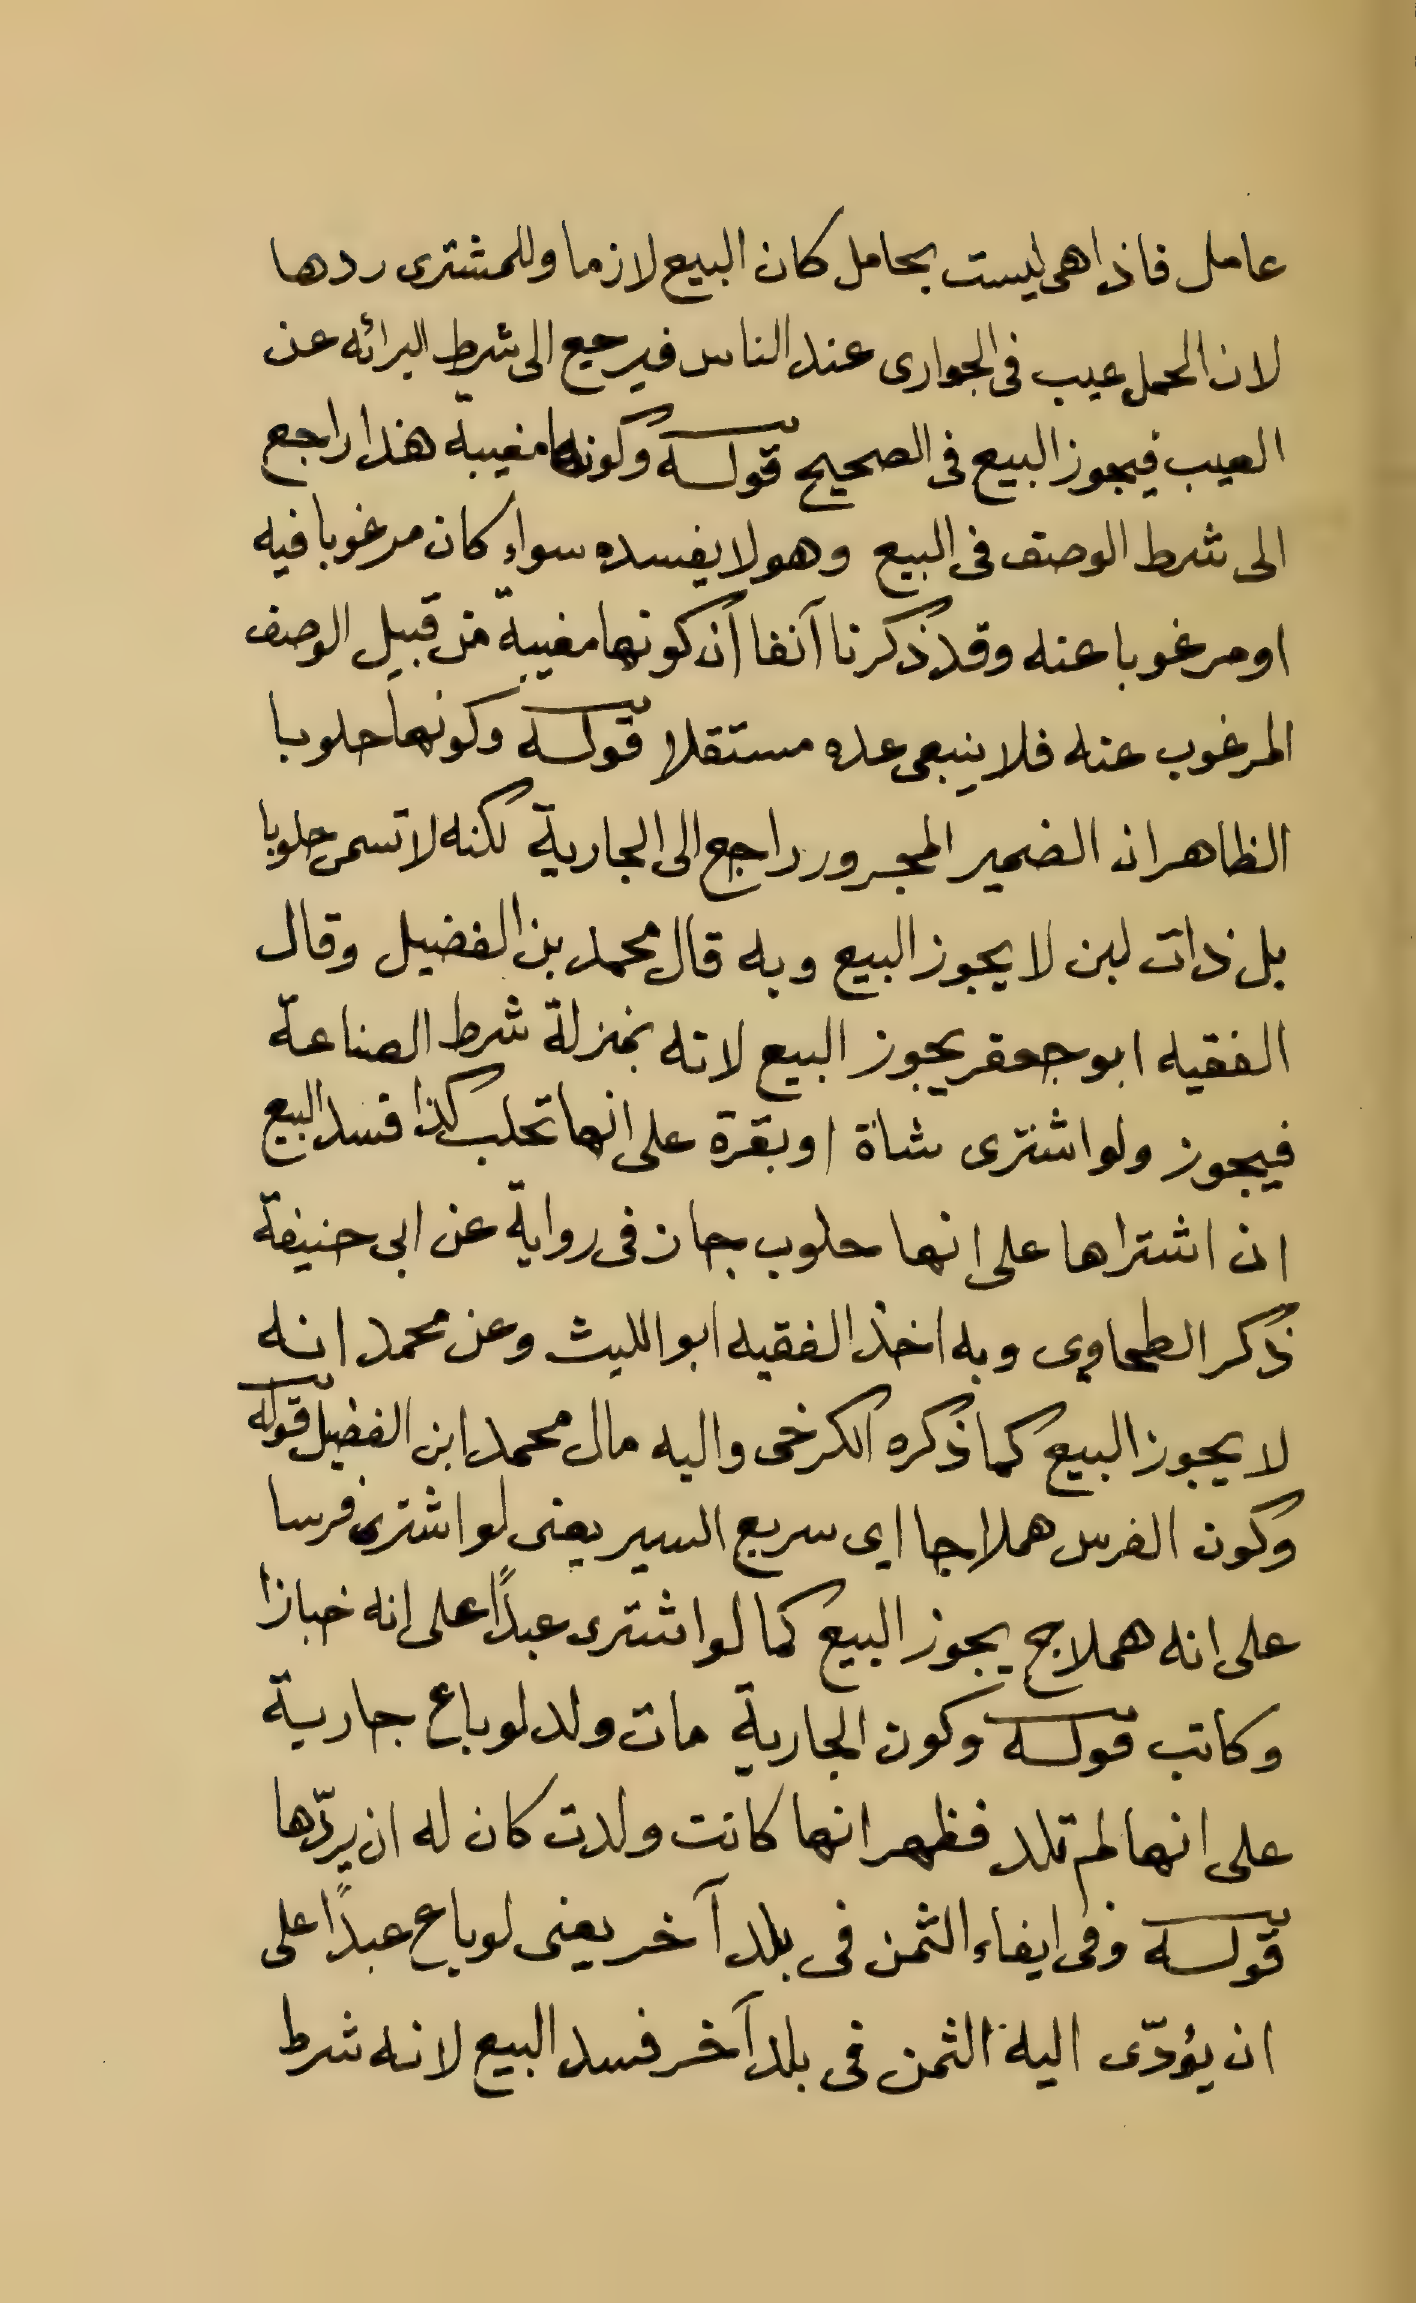 عامل فاذا هى ليست بحامل كان البيع لازما وللمشترى ردها
لان الحمل عيب فى الجوارى عند الناس فيرجع الى شرط البرائه عن
العيب فيجوز البيع فى الصحيح قوله وكونها مغيبة هذا راجع
الى شرط الوصف فى البيع وهو لا يفسده سواء كان مرغوبا فيه
او مرغوبا عنه وقد ذكرنا آنفا ان كونها مغيبة من قبيل الوصف
المرغوب عنه فلا ينبغى عده مستقلا قوله وكونها حلوبا
الظاهر ان الضمير المجرور راجع الى الجارية لكنه لا تسمى حلوبا
بل ذات لبن لا يجوز البيع وبه قال محمد بن الفضيل وقال
الفقيه ابو جعفر يجوز البيع لانه بمنزلة شرط الصناعة
فيجوز ولو اشترى شاة او بقرة على انها تحلب كذا فسد البيع
ان اشتراها على انها حلوب جاز فى رواية عن ابى حنيفة
ذكر الطحاوى وبه اخذ الفقيه ابو الليث وعن محمد انه
لا يجوز البيع كما ذكره الكرخى واليه مال محمد ابن الفضيل قوله
وكون الفرس هملاجا اى سريع السير يعنى لو اشترى فرسا
على انه هملاج يجوز البيع كما لو اشترى عبدًا على انه خبازا
وكاتب قوله وكون الجارية مات ولد لو باع جارية
على انها لم تلد فظهر انها كانت ولدت كان له ان يردّها
قوله وفى ايفاء الثمن فى بلد آخر يعنى لو باع عبدًا على
ان يؤدّى اليه الثمن فى بلد آخر فسد البيع لانه شرط